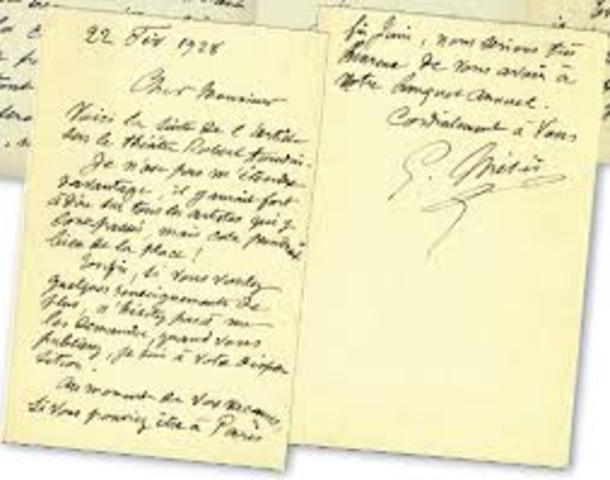 22 Fév 1928
Cher Monsieur
Voici la suite de l'article
sur le théâtre Robert Houdin.
Je n'ose pas m'étendre
davantage, il y aurait fort
à dire sur tous les artistes qui y
sont passés, mais cela prendrait
bien de la place !
Enfin, si vous voulez
quelques renseignements de
plus, n'hésitez pas à me
les demander, quand vous
publierez, je suis à votre dispo
sition.
Au moment de vos vacances
si vous pouviez être à Paris
fin Juin, nous serions très
heureux de vous avoir à
notre banquet annuel.
Cordialement à vous
G. Méliès